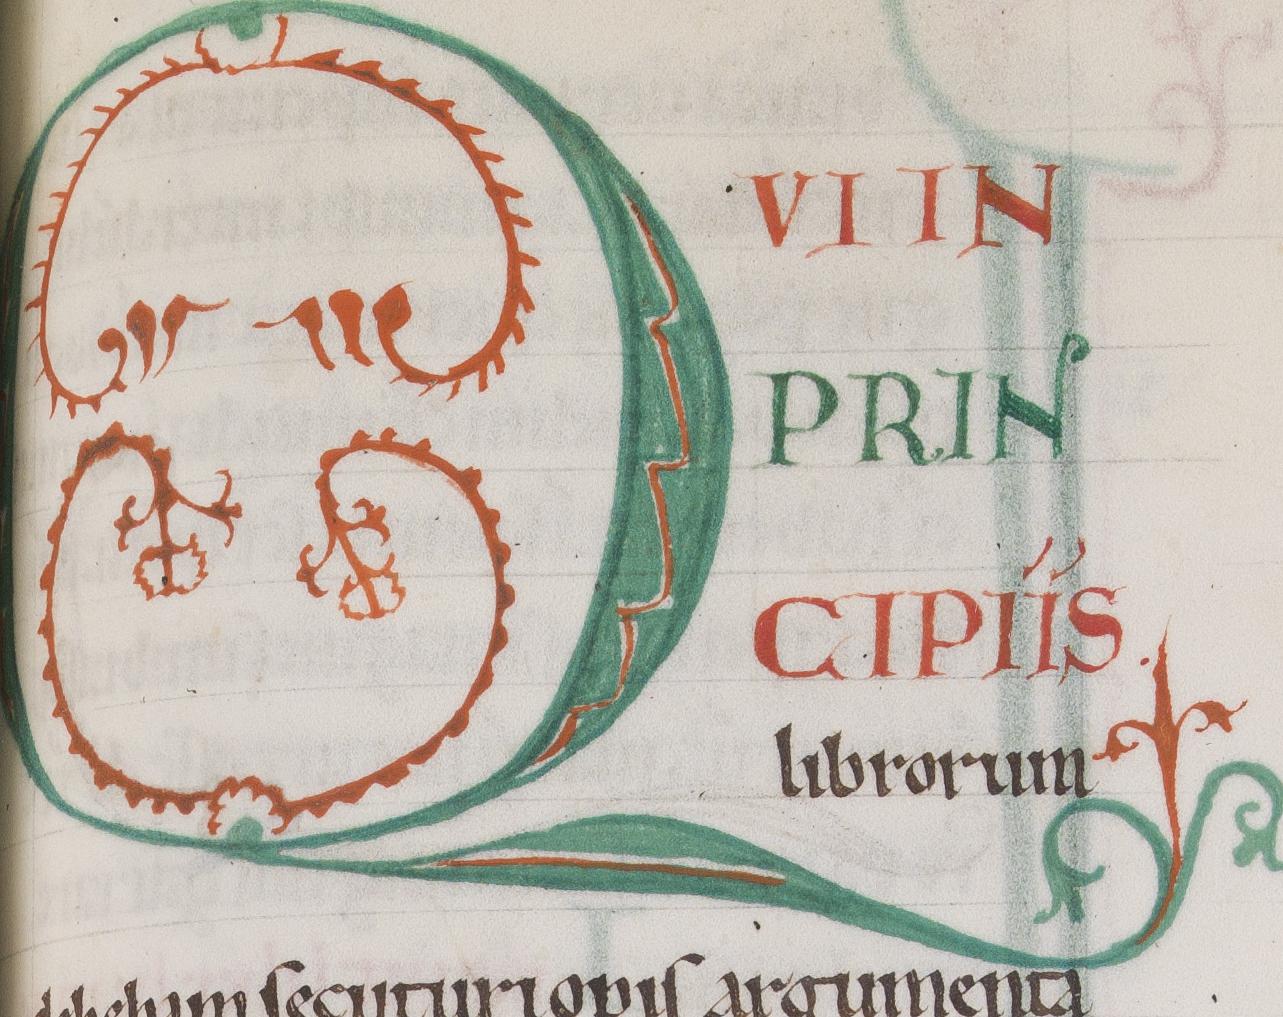 QVI IN
PRIN
CIPIIS
librorum
debebam secuturi opis argumenta